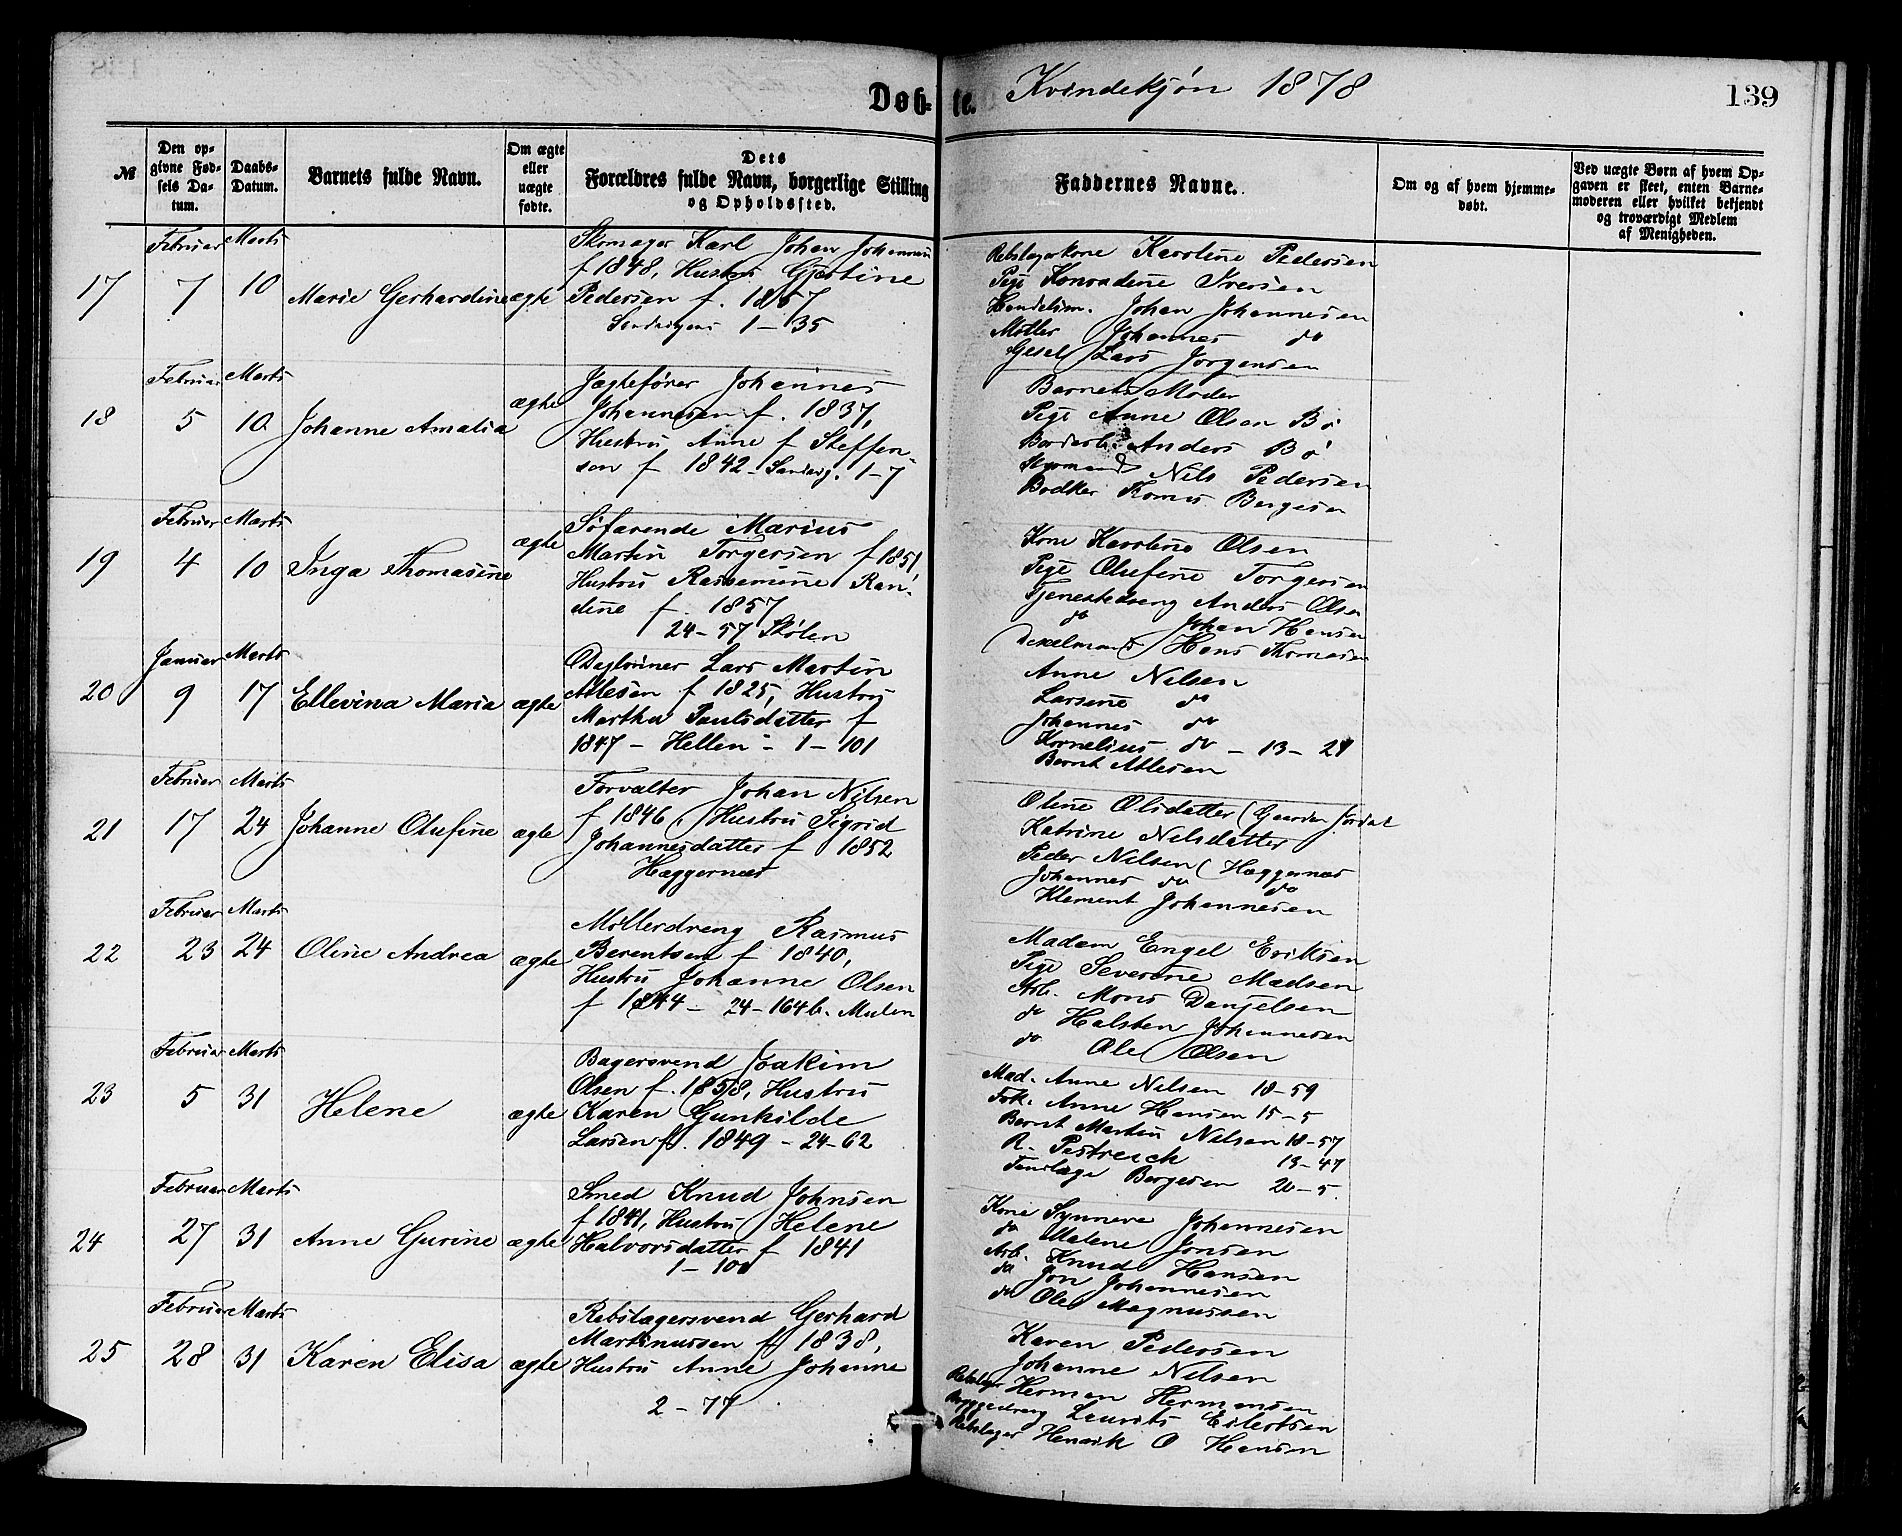 Døb-
te.
Kvindekjøn 1878
139
№
Den op-
givne Fød-
sels Da-
tum.
Daabs-
Datum.
Barnets fulde Navn.
Om ægte
eller
uægte
fødte.
Dets
Forældres fulde Navn, borgerlige Stilling
og Opholdssted.
Faddernes Navne.
Om og af hvem hjemme-
døbt.
Ved uægte Børn af hvem Op-
gaven er skeet, enten Barne-
moderen eller hvilket bekjendt
og troværdigt Medlem
af Menigheden.
17
Februar
7
Marts
10
Marie Gerhardine
ægte
Skomager Karl Johan Johannesen
f 1848, Hustru Gjertine
Pedersen f. 1857
1-35
Rebslagerkone Karoline Pedersen
Pige Konradine Iversen
Johan Johannesen
Møller Johannes do
Gesel Lars Jørgensen
18
Februar
5
Marts
10
Johanne Amalia
ægte
Jægtefører Johannes
Johannesen f. 1837,
Hustru Anne f Steffen-
sen f 1842 - Sandvig. 1-7
Barnets Moder
Pige Anne Olsen Bø
Anders Bø
Styrmand Nils Pedersen
Bødker Tomas Børgesen
19
Februar
4
Marts
10
Inga Thomasine
ægte
Søfarende Marius
Martin Torgersen f 1851,
Hustru Rasmine Ran-
dine f. 1857
24-57 Skolen
Kone Karoline Olsen
Pige Olufine Torgersen
Tjenestedreng Anders Olsen
do Johan Hansen
Hans Thomasen
20
Januar
9
Marts
17
Ellevina Maria
ægte
Daglønner Lars Martin
Atlesen f 1825, Hustru
Martha Paulsdatter f
1847 - Hellen - 1-101
Anne Nilsen
Larsine do
Johannes do
Kornelius do - 13-21
Bernt Atlesen
21
Februar
17
Marts
24
Johanne Olufine
ægte
Forvalter Johan Nilsen
f 1846, Hustru Sigrid
Johannesdatter f 1852
Hæggernæs
Oline Olsdatter (Gaarden Jordal
Katrine Nilsdatter
Peder Nilsen (Hæggernæs
Johannes do do
Klement Johannesen
22
Februar
23
Marts
24
Oline Andrea
ægte
Møllerdreng Rasmus
Berentsen f 1840,
Hustru Johanne Olsen
f 1844 - 24-164b. Mulen
Madam Engel Eriksen
Pige Severine Madsen
Arb. Mons Danjelsen
do Halsten Johannesen
do Ole Olsen
23
Februar
5
Marts
31
Helene
ægte
Bagersvend Joakim
Olsen f. 1858, Hustru
Karen Gunhilde
Larsen f. 1849 - 24-62
Mad. Anne Nilsen 18-59
Frk. Anne Hansen 15-5
Bernt Martin Nilsen 18-57
R. Pestreich 13-47
Børgesen 20-5.
24
Februar
27
Marts
31
Anne Gurine
ægte
Smed Knud Johnsen
f 1841, Hustru Helene
Halvorsdatter f 1841
1-100
Kone Synneve Johannesen
do Malene Jonsen
Arb. Knud Hansen
do Jon Johannesen
do Ole Magnussen
25
Februar
28
Marts
31
Karen Elisa
ægte
Rebslagersvend Gerhard
Martinussen f 1838,
Hustru Anne Johanne
2-77
Karen Pedersen
Johanne Nilsen
Rebslager Herman Hermansen
Bryggedreng Laurits Eilertsen
Rebslager Henrik O Hansen